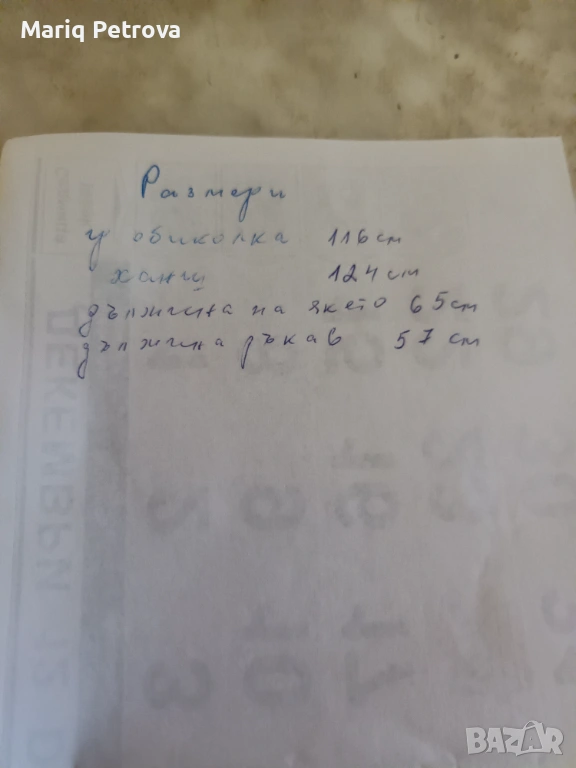 Mariq Petrova
Размери
гр обиколка 116 см
ханш 124 см
дължина на якето 65 см
дължина ръкав 57 см
ДЕКЕМВРИ
BAZAR